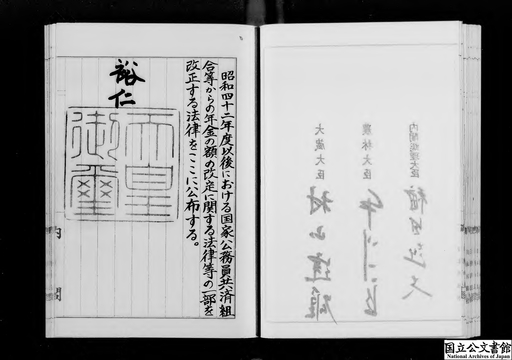 昭和四十二年度以後における国家公務員共済組
合等からの年金の額の改定に関する法律等の一部を
改正する法律をここに公布する。
裕仁
天皇
御璽
内閣
内閣総理大臣
農林大臣
大蔵大臣
国立公文書館
National Archives of Japan